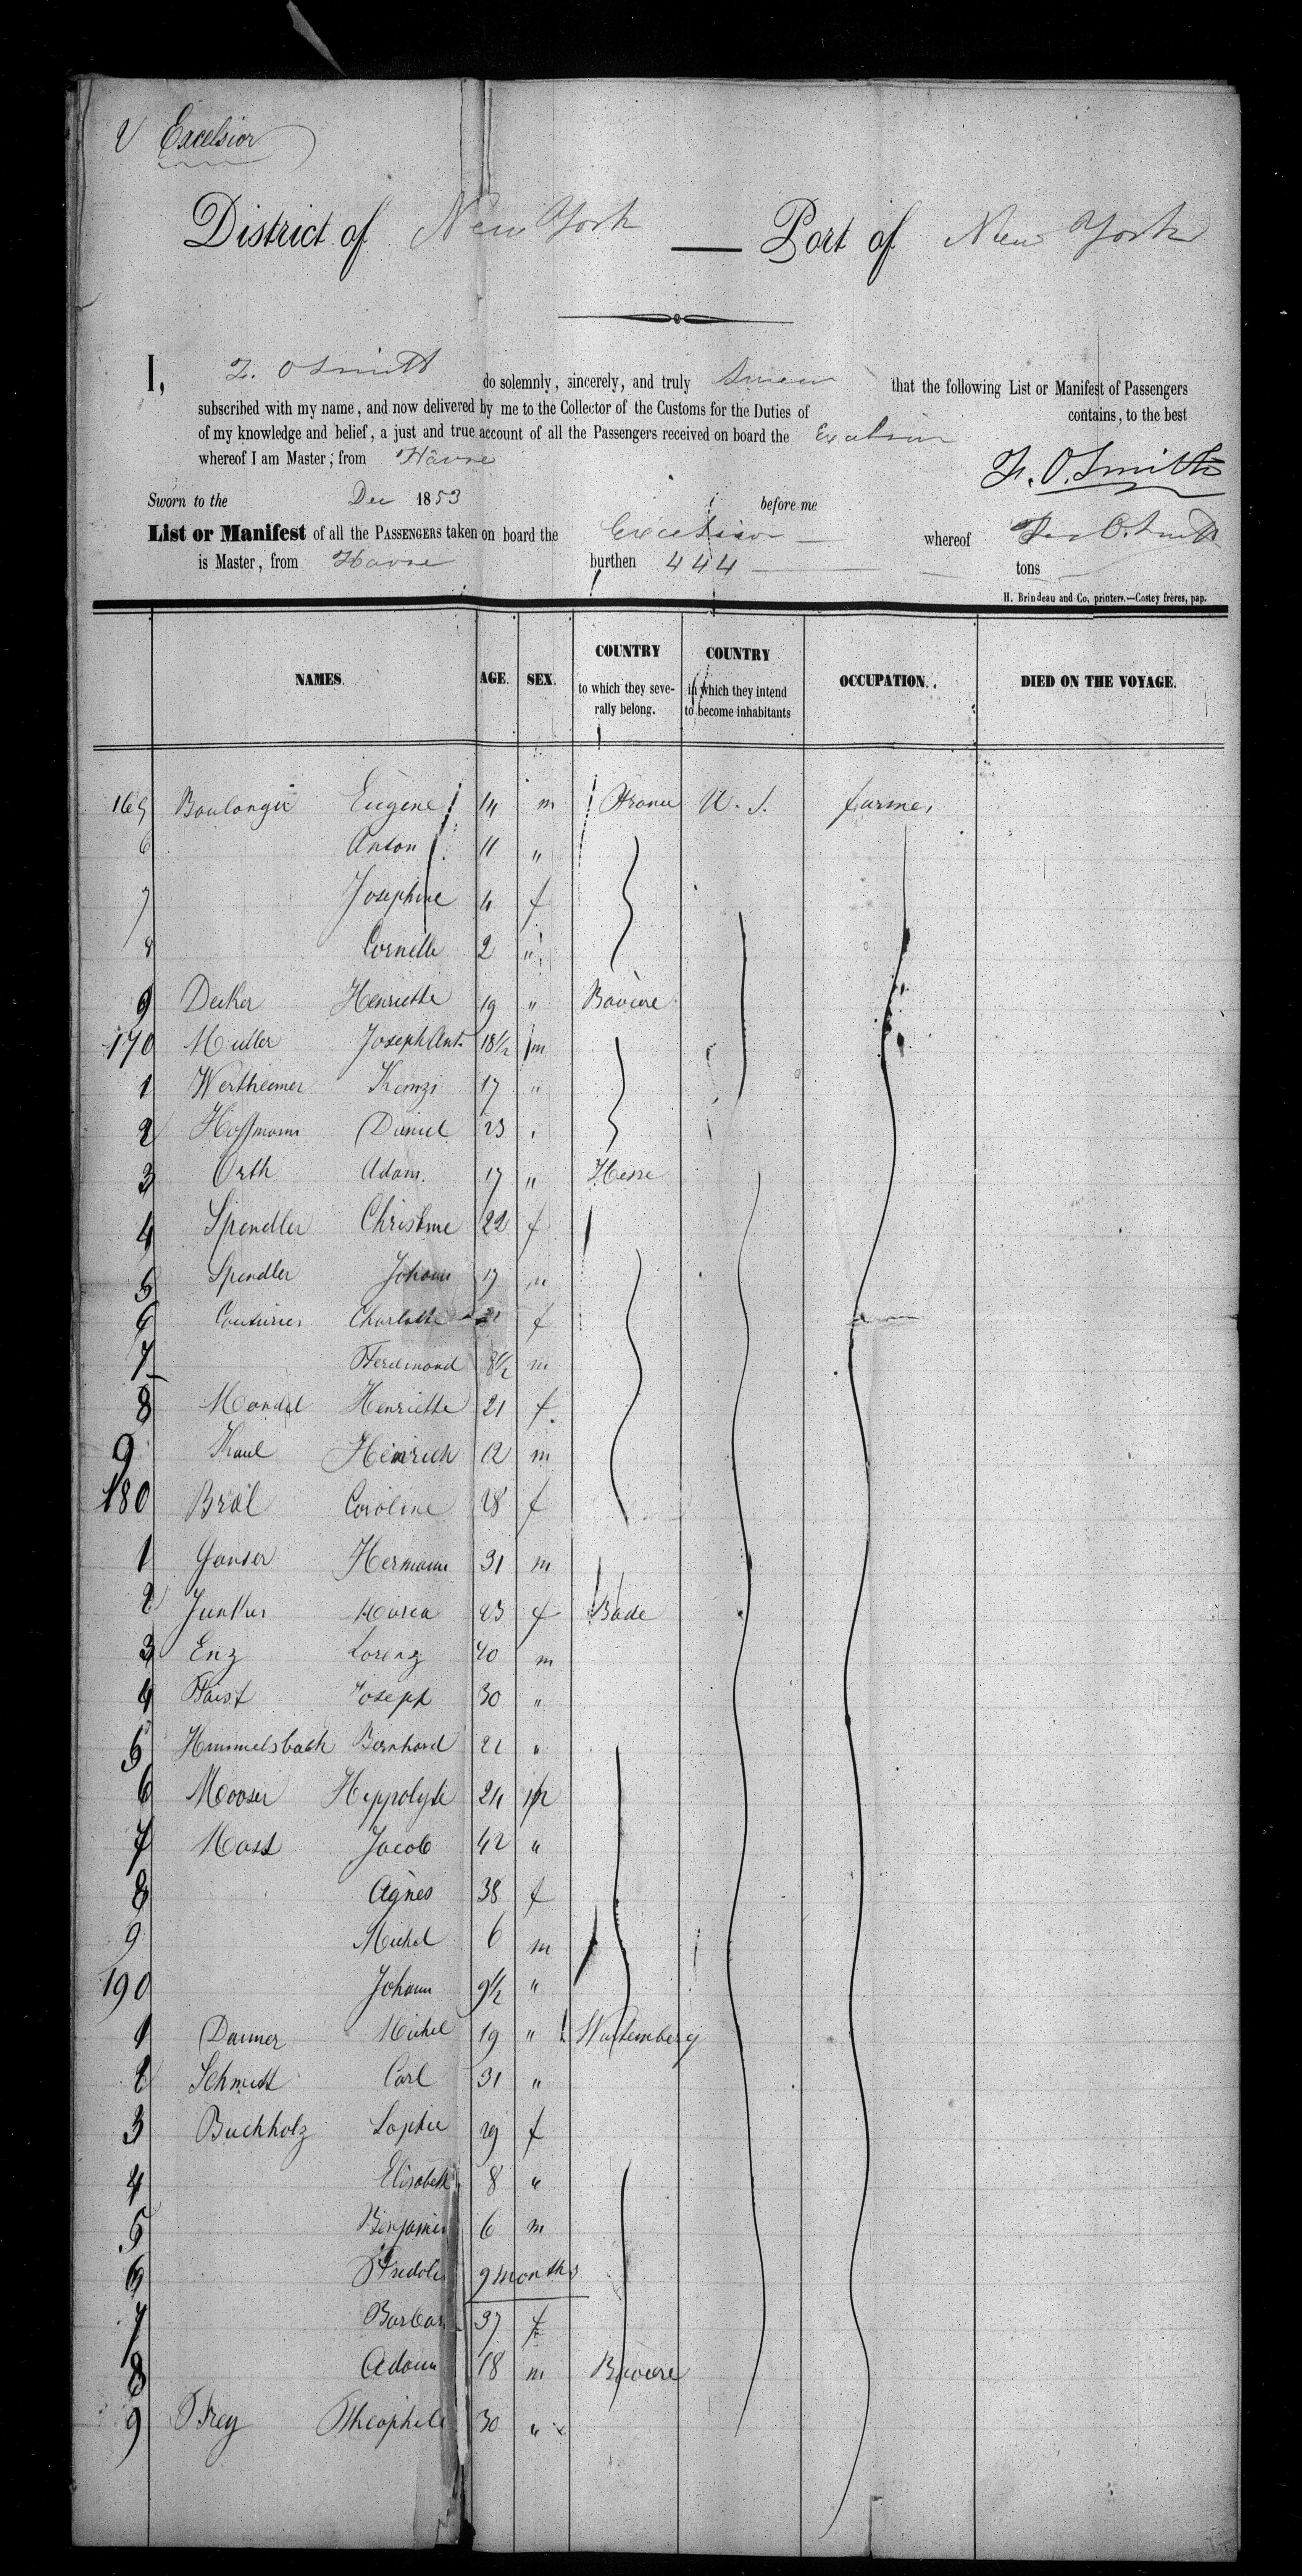 Excelsior
District of New York — Port of New York
I, F. O Smith do solemnly, sincerely, and truly swear that the following List or Manifest of Passengers
subscribed with my name, and now delivered by me to the Collector of the Customs for the Duties of contains, to the best
of my knowledge and belief, a just and true account of all the Passengers received on board the Excelsior
whereof I am Master; from Havre
F. O. Smith
Sworn to the Dec 1853 before me
List or Manifest of all the PASSENGERS taken on board the Excelsior whereof O. Smith
is Master, from Havre burthen 444 tons
H. Brindeau and Co, printers.—Costey frères, pap.
NAMES. AGE. SEX. COUNTRY to which they severally belong. COUNTRY in which they intend to become inhabitants OCCUPATION. DIED ON THE VOYAGE.
165 Boulanger Eugene 14 m France U. S. farmer
6 Anton 11 "
7 Josephine 4 f
8 2 "
9 Decker Henriette 19 " Baviere
170 Muller Joseph Ant. 18 1/2 m
1 Wertheimer 17 "
2 Hoffmann Daniel 23 "
3 Orth Adam 17 " Hesse
4 Spendler Christine 22 f
5 Spendler Johann 17 m
6 Couturier Charlotte 21 f
7 Ferdinand 8 1/2 m
8 Mandel Henriette 21 f.
9 Kaul Heinrich 12 m
180 Bräl Caroline 28 f
1 Ganser Hermann 31 m
2 Junker Maria 23 f Bade
3 Enz Lorenz 40 m
4 Faist Joseph 30 "
5 Himmelsbach Bernhard 21 "
6 Mooser Hippolyte 24 m
7 Mast Jacob 42 "
8 Agnes 38 f
9 Michel 6 m
190 Johann 9 1/2 "
1 Danner Michel 19 " Wurtemberg
2 Schmitt Carl 31 "
3 Buchholz Sophie 29 f
4 Elisabeth 8 "
5 Benjamin 6 m
6 Fridolin 9 months
7 Barbara 37 f
8 Adam 18 m Baviere
9 Frey Theophile 30 "